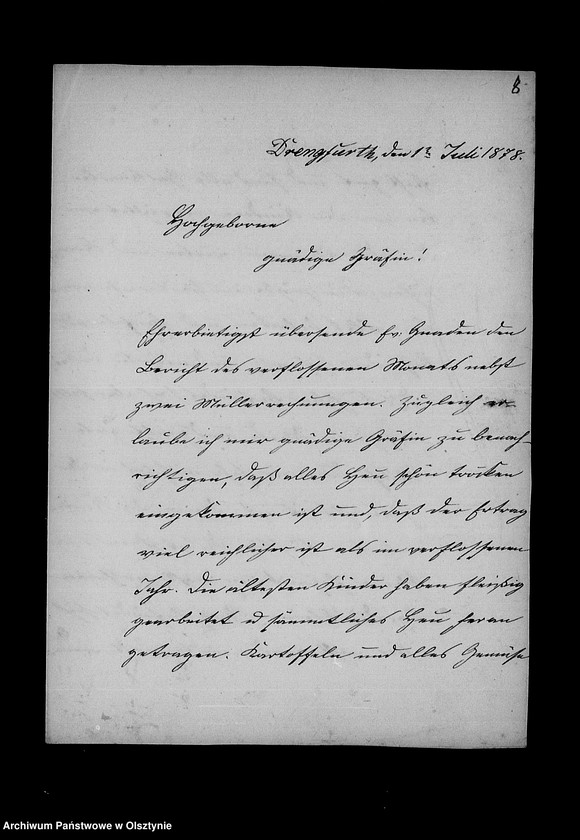 8
Drengfurth, den 1t Juli 1878.
Hochgeborne
gnädige Gräfin!
Ehrerbietigst übersende Ew. Gnaden den
Bericht des verflossenen Monats nebst
zwei Müllerrechnungen. Zugleich er-
laube ich mir gnädige Gräfin zu benach-
richtigen, daß alles Heu schön trocken
eingekommen ist und, daß der Ertrag
viel reichlicher ist als im verflossenen
Jahr. Die ältesten Kinder haben fleißig
gearbeitet u sämmtliches Heu heran
getragen. Kartoffeln und alles Gemüse
Archiwum Państwowe w Olsztynie